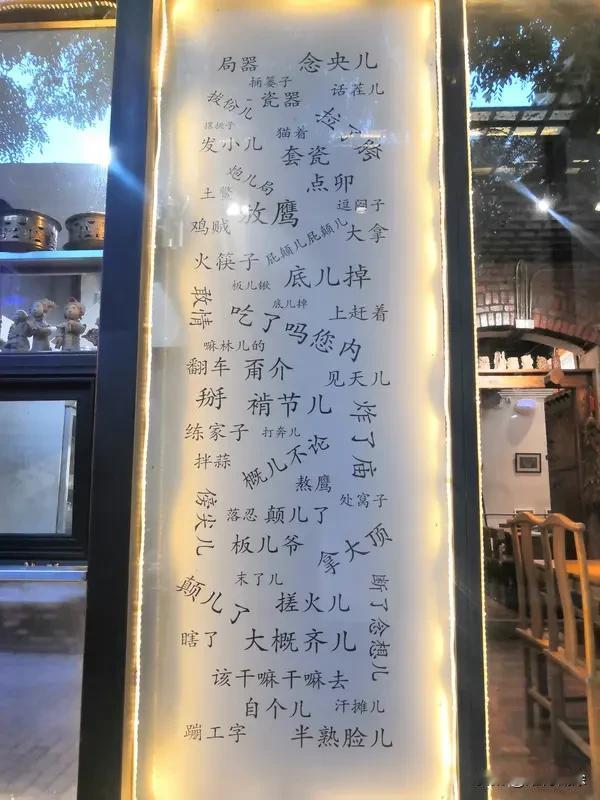 局器 念央儿
捅篓子
话茬儿
拔份儿
瓷器
撂挑子
猫着
捡了啥
发小儿
套瓷
炮儿局
点卯
土鳖
放鹰
逗闷子
鸡贼
屁颠儿屁颠儿
大拿
火筷子
板儿锹
底儿掉
敢情
底儿掉
上赶着
吃了吗您内
嘛林儿的
翻车 甭介
见天儿
掰 褃节儿
炸了庙
练家子 打奔儿
概儿不论
拌蒜
熬鹰
处窝子
傍尖儿
落忍 颠儿了
板儿爷
拿大顶
末了儿
颠儿了
搓火儿
断了念想儿
瞎了 大概齐儿
该干嘛干嘛去
自个儿 汗摊儿
蹦工字 半熟脸儿